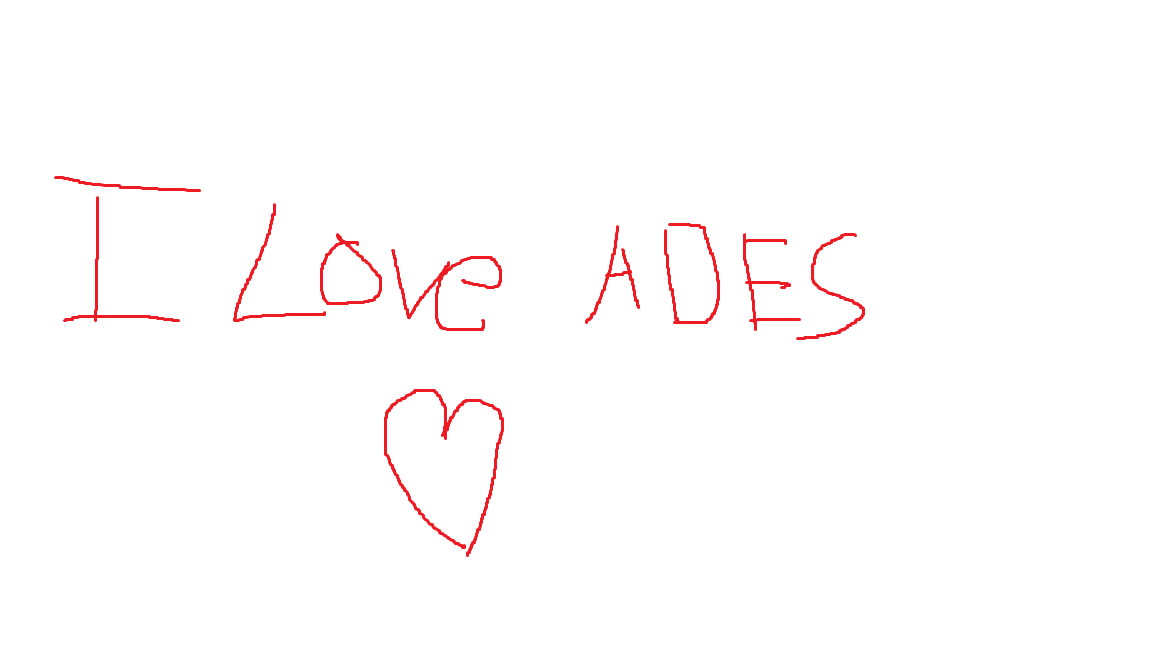 I Love ADES